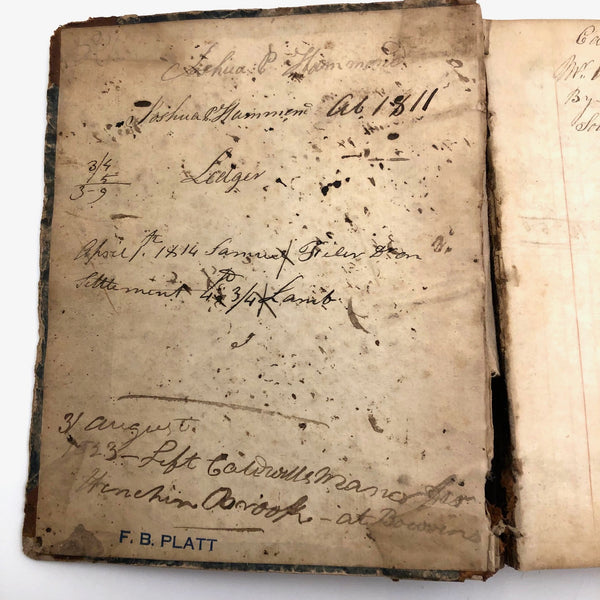 Joshua P Hammond
Joshua P Hammond Ab 1811
3/4
5
3-9
Ledger
April 1.th 1814 Samuel Filer Dr on
Settlement 3/4 Lamb
31 August
1823 - Left Caldwells Manor for
Hinchin Brook - at Bowins
F. B. PLATT
Mr.
By